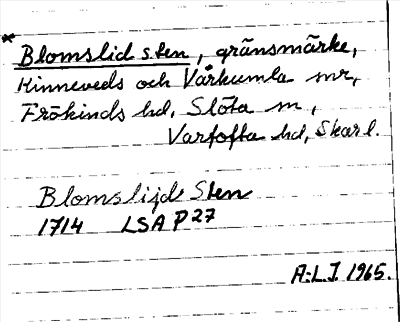 *Blomslid sten, gränsmärke,
Kinneveds och Vårkumla snr,
Frökinds hd, Slöta sn,
Vartofta hd, Skar l.
Blomslijd Sten
1714 LSA P27
A.L.J. 1965.